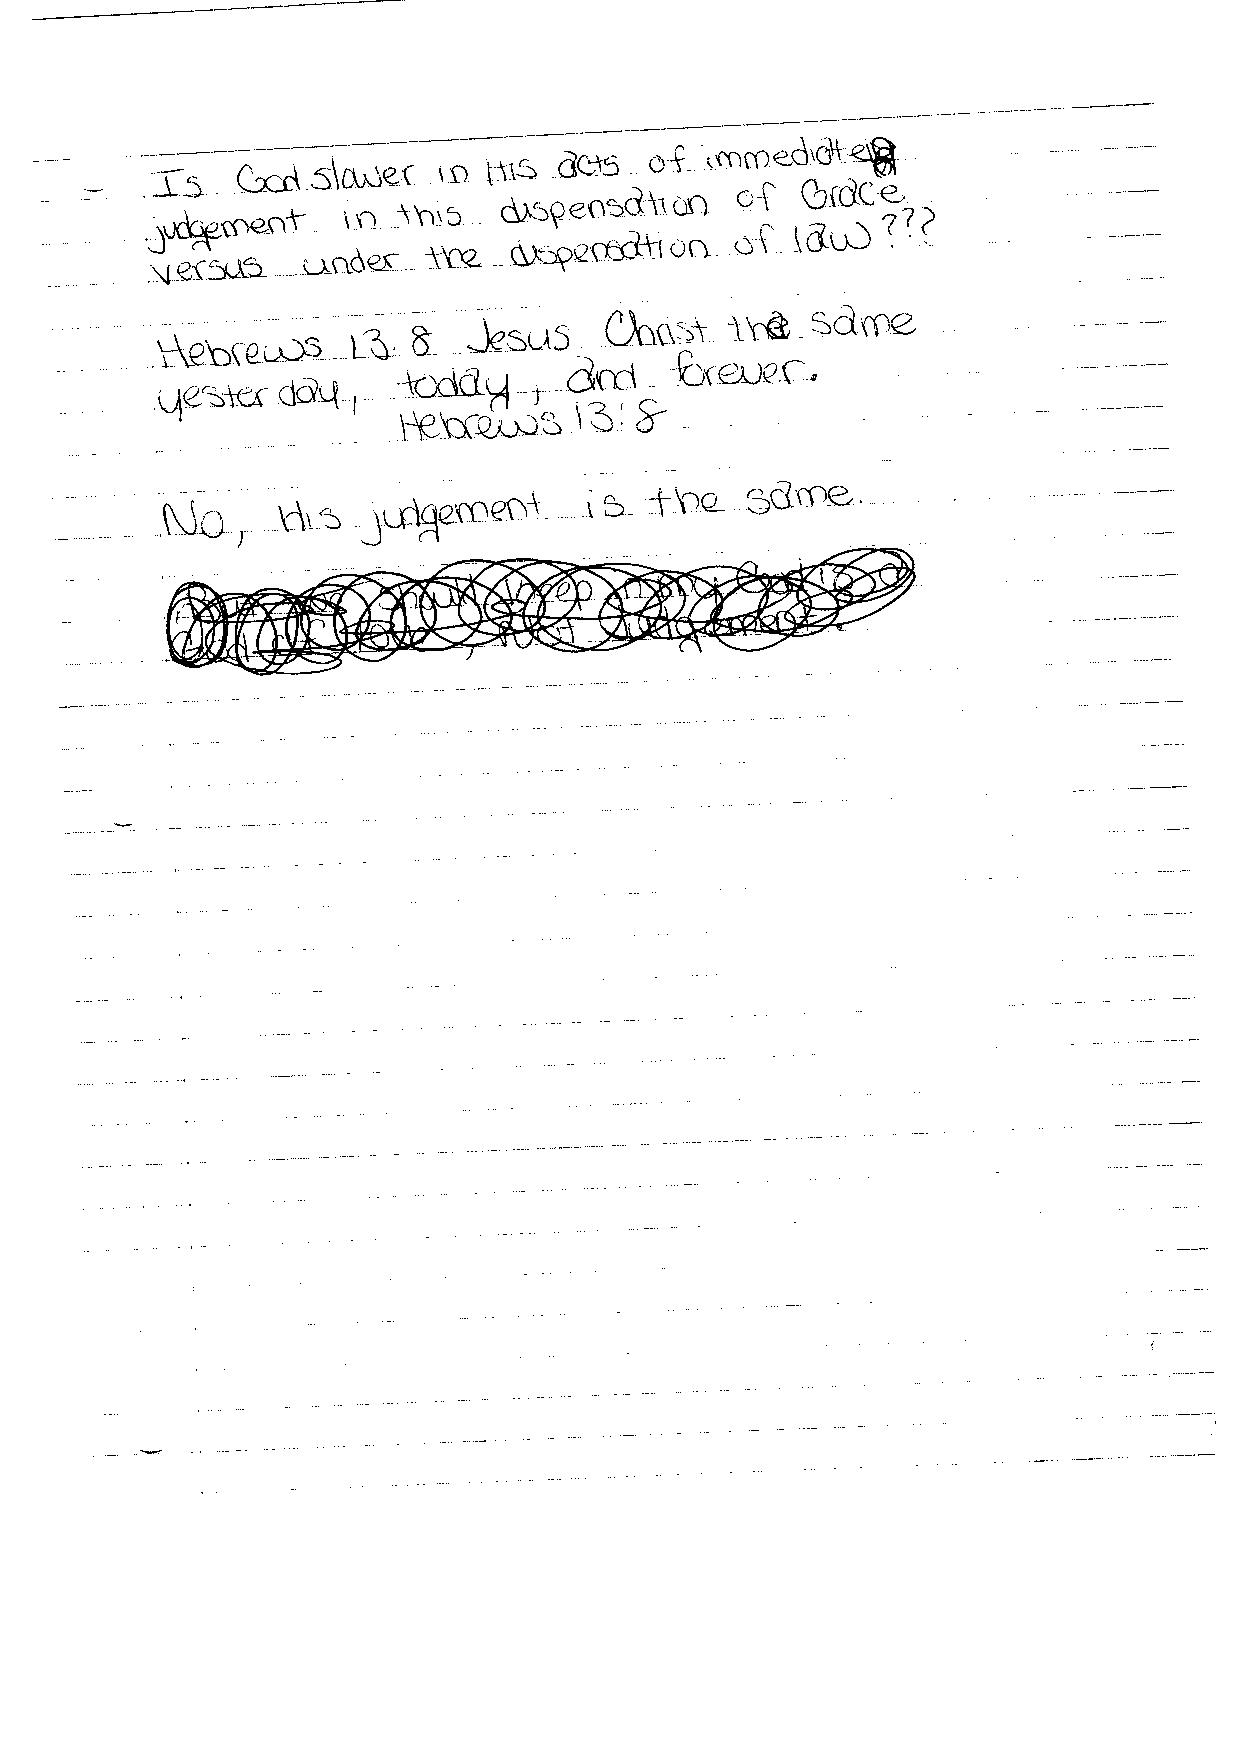 - Is God slower in His acts of immediate
judgement in this dispensation of Grace
versus under the dispensation of law???
Hebrews 13:8 Jesus Christ the same
yesterday, today, and forever.
Hebrews 13:8
No, His judgement is the same.